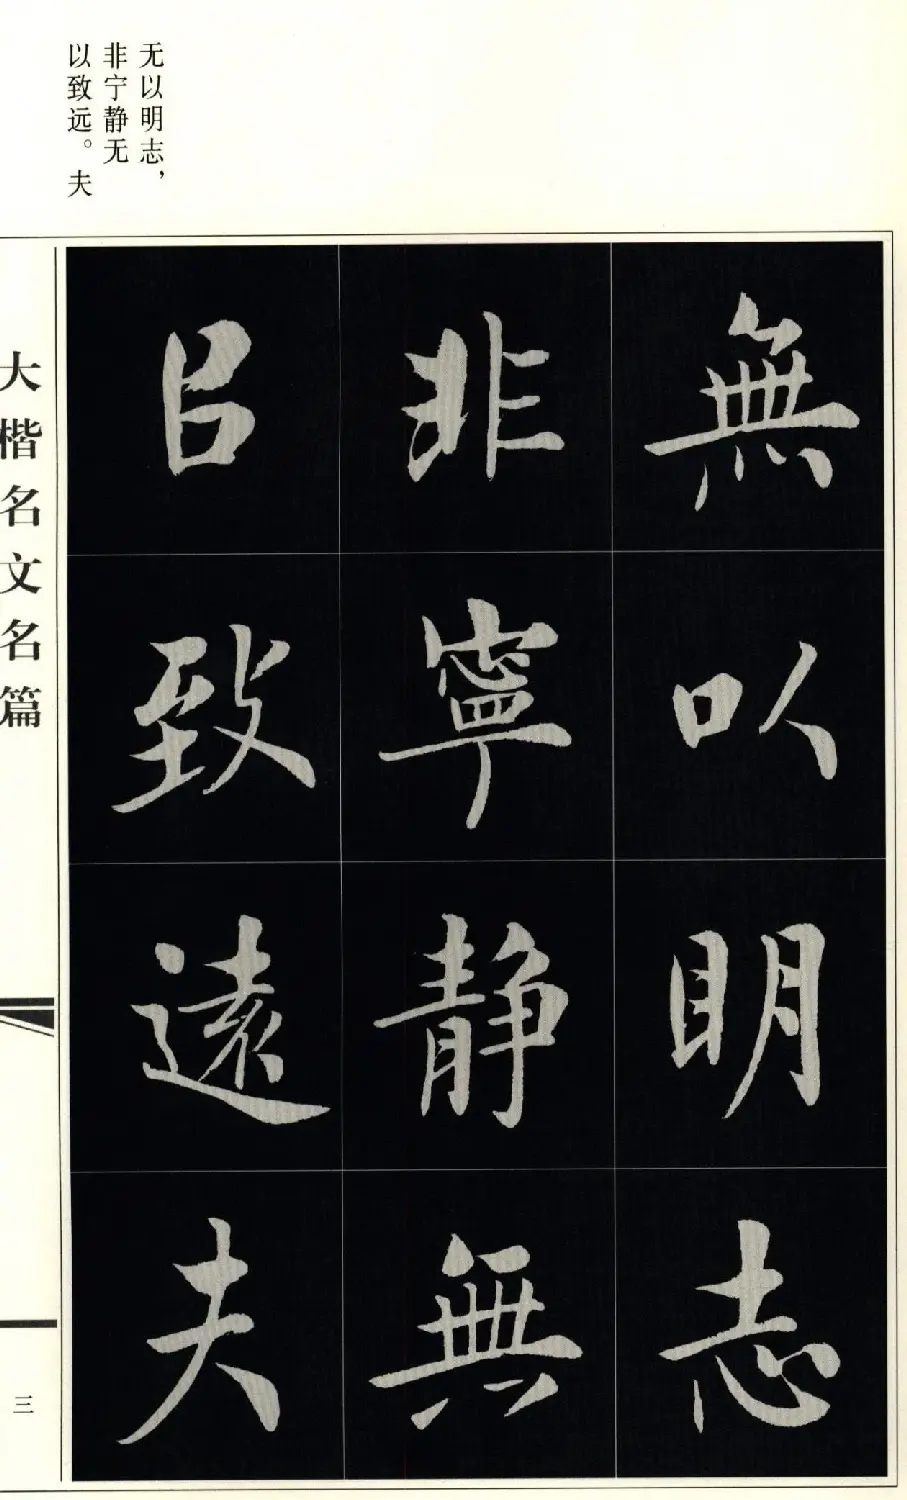 无以明志，
非宁静无
以致远。夫
無以明志
非寧静無
㠯致遠夫
大楷名文名篇
三